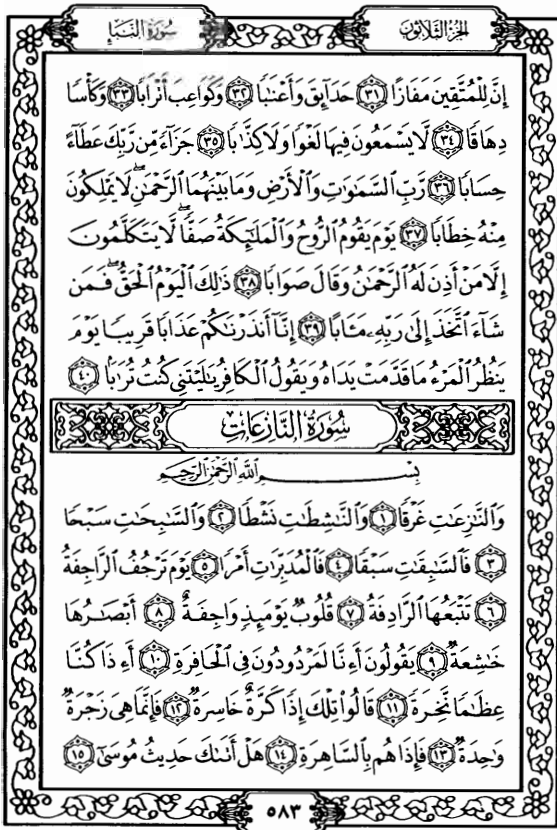 الجزء الثلاثون
سورة النبإ
إِنَّ لِلْمُتَّقِينَ مَفَازًا ٣١ حَدَآئِقَ وَأَعْنَٰبًا ٣٢ وَكَوَاعِبَ أَتْرَابًا ٣٣ وَكَأْسًا
دِهَاقًا ٣٤ لَّا يَسْمَعُونَ فِيهَا لَغْوًا وَلَا كِذَّٰبًا ٣٥ جَزَآءً مِّن رَّبِّكَ عَطَآءً
حِسَابًا ٣٦ رَّبِّ ٱلسَّمَٰوَٰتِ وَٱلْأَرْضِ وَمَا بَيْنَهُمَا ٱلرَّحْمَٰنِۖ لَا يَمْلِكُونَ
مِنْهُ خِطَابًا ٣٧ يَوْمَ يَقُومُ ٱلرُّوحُ وَٱلْمَلَٰٓئِكَةُ صَفًّاۖ لَّا يَتَكَلَّمُونَ
إِلَّا مَنْ أَذِنَ لَهُ ٱلرَّحْمَٰنُ وَقَالَ صَوَابًا ٣٨ ذَٰلِكَ ٱلْيَوْمُ ٱلْحَقُّۖ فَمَن
شَآءَ ٱتَّخَذَ إِلَىٰ رَبِّهِۦ مَـَٔابًا ٣٩ إِنَّآ أَنذَرْنَٰكُمْ عَذَابًا قَرِيبًا يَوْمَ
يَنظُرُ ٱلْمَرْءُ مَا قَدَّمَتْ يَدَاهُ وَيَقُولُ ٱلْكَافِرُ يَٰلَيْتَنِى كُنتُ تُرَٰبًۢا ٤٠
سورة النازعات
بِسْمِ ٱللَّهِ ٱلرَّحْمَٰنِ ٱلرَّحِيمِ
وَٱلنَّٰزِعَٰتِ غَرْقًا ١ وَٱلنَّٰشِطَٰتِ نَشْطًا ٢ وَٱلسَّٰبِحَٰتِ سَبْحًا
٣ فَٱلسَّٰبِقَٰتِ سَبْقًا ٤ فَٱلْمُدَبِّرَٰتِ أَمْرًا ٥ يَوْمَ تَرْجُفُ ٱلرَّاجِفَةُ
٦ تَتْبَعُهَا ٱلرَّادِفَةُ ٧ قُلُوبٌ يَوْمَئِذٍ وَاجِفَةٌ ٨ أَبْصَٰرُهَا
خَٰشِعَةٌ ٩ يَقُولُونَ أَءِنَّا لَمَرْدُودُونَ فِى ٱلْحَافِرَةِ ١٠ أَءِذَا كُنَّا
عِظَٰمًا نَّخِرَةً ١١ قَالُوا۟ تِلْكَ إِذًا كَرَّةٌ خَاسِرَةٌ ١٢ فَإِنَّمَا هِىَ زَجْرَةٌ
وَٰحِدَةٌ ١٣ فَإِذَا هُم بِٱلسَّاهِرَةِ ١٤ هَلْ أَتَىٰكَ حَدِيثُ مُوسَىٰٓ ١٥
٥٨٣